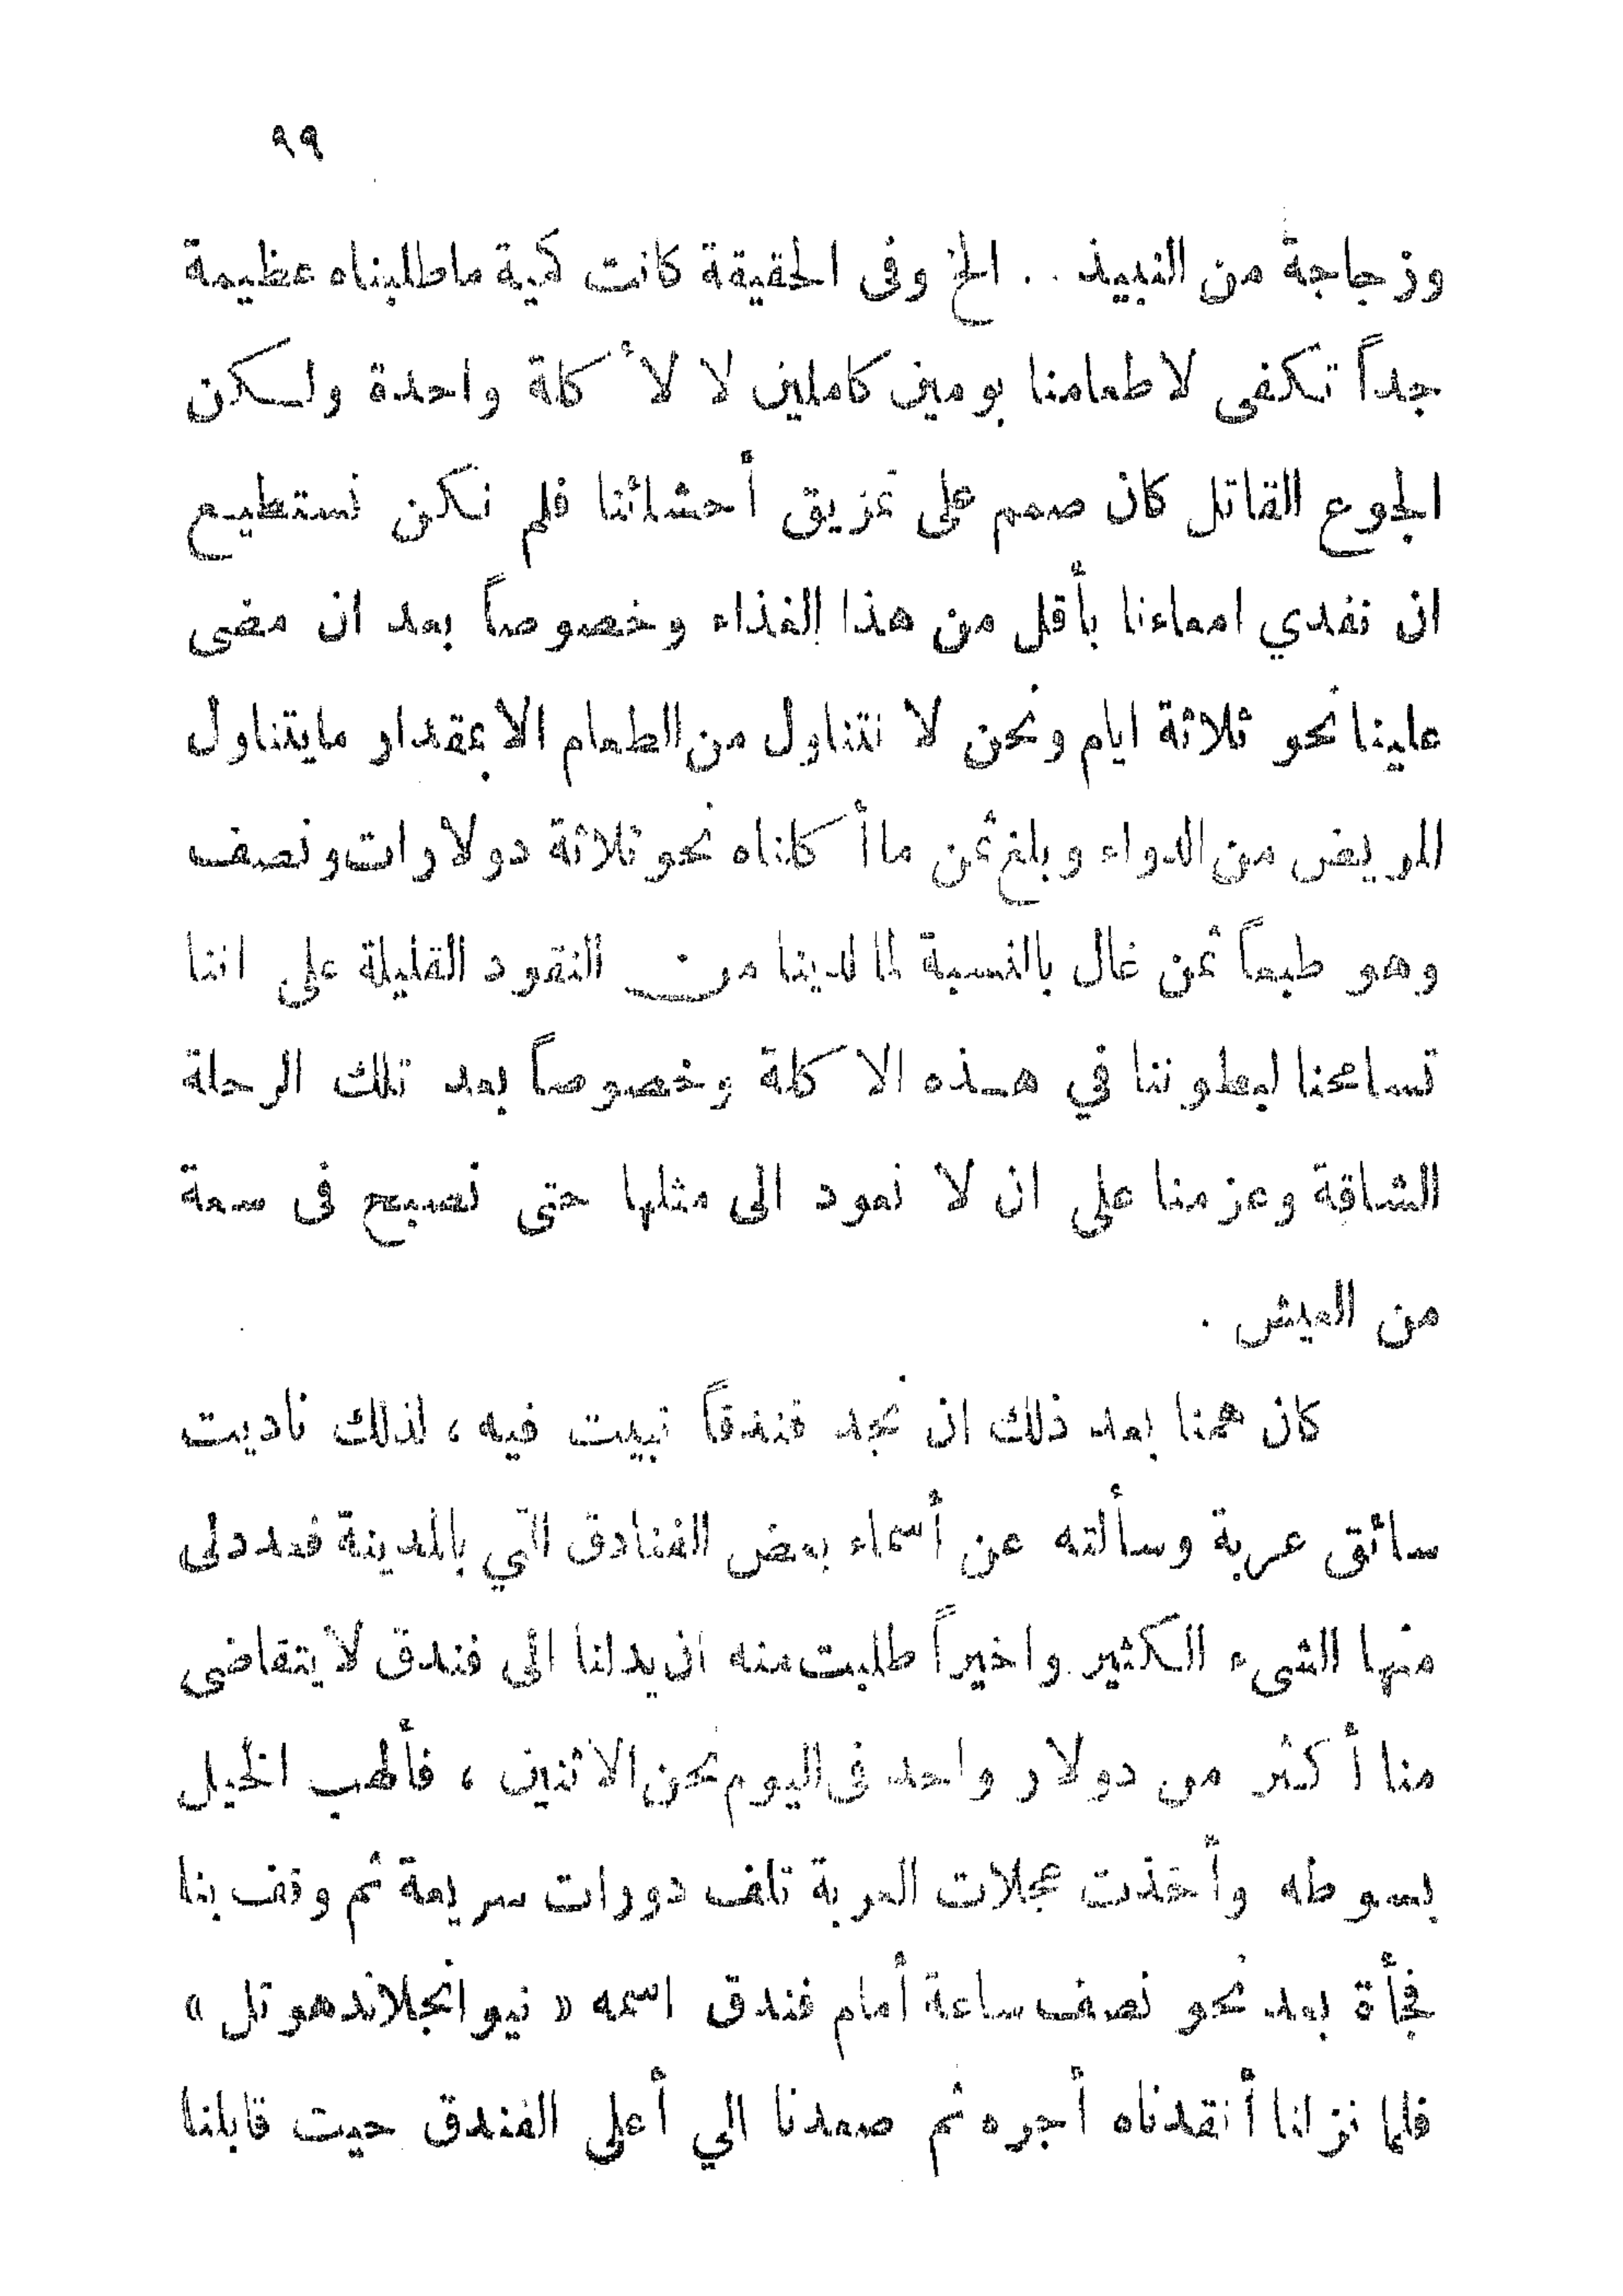 ٩٩
وزجاجة من النبيذ . . الخ وفى الحقيقة كانت كمية ماطلبناه عظيمة
جداً تكفى لاطعامنا يومين كاملين لا لأ كلة واحدة ولكن
الجوع القاتل كان صمم على تمزيق أحشائنا فلم نكن نستطيع
ان نغدي امعاءنا بأقل من هذا الغذاء وخصوصاً بعد ان مضى
علينا نحو ثلاثة ايام ونحن لا نتناول من الطعام الا بمقدار مايتناول
المريض من الدواء وبلغ ثمن ما أ كلناه نحو ثلاثة دولارات ونصف
وهو طبعاً ثمن غال بالنسبة لما لدينا من النقود القليلة على اننا
تسامحنا لبطوننا في هذه الا كلة وخصوصاً بعد تلك الرحلة
الشاقة وعزمنا على ان لا نعود الى مثلها حتى نصبح فى سعة
من العيش .
كان همنا بعد ذلك ان نجد فندقاً نبيت فيه ، لذلك ناديت
سائق عربة وسألته عن أسماء بعض الفنادق التي بالمدينة فعددلى
منها الشىء الكثير واخيراً طلبت منه ان يدلنا الى فندق لايتقاضى
منا أ كثر من دولار واحد فى اليوم نحن الاثنين ، فألهب الخيل
بسوطه وأخذت عجلات العربة تلف دورات سريعة ثم وقف بنا
فجأة بعد نحو نصف ساعة أمام فندق اسمه « نيو انجلاندهوتل »
فلما نزلنا أنقدناه أجره ثم صعدنا الي أعلى الفندق حيت قابلنا